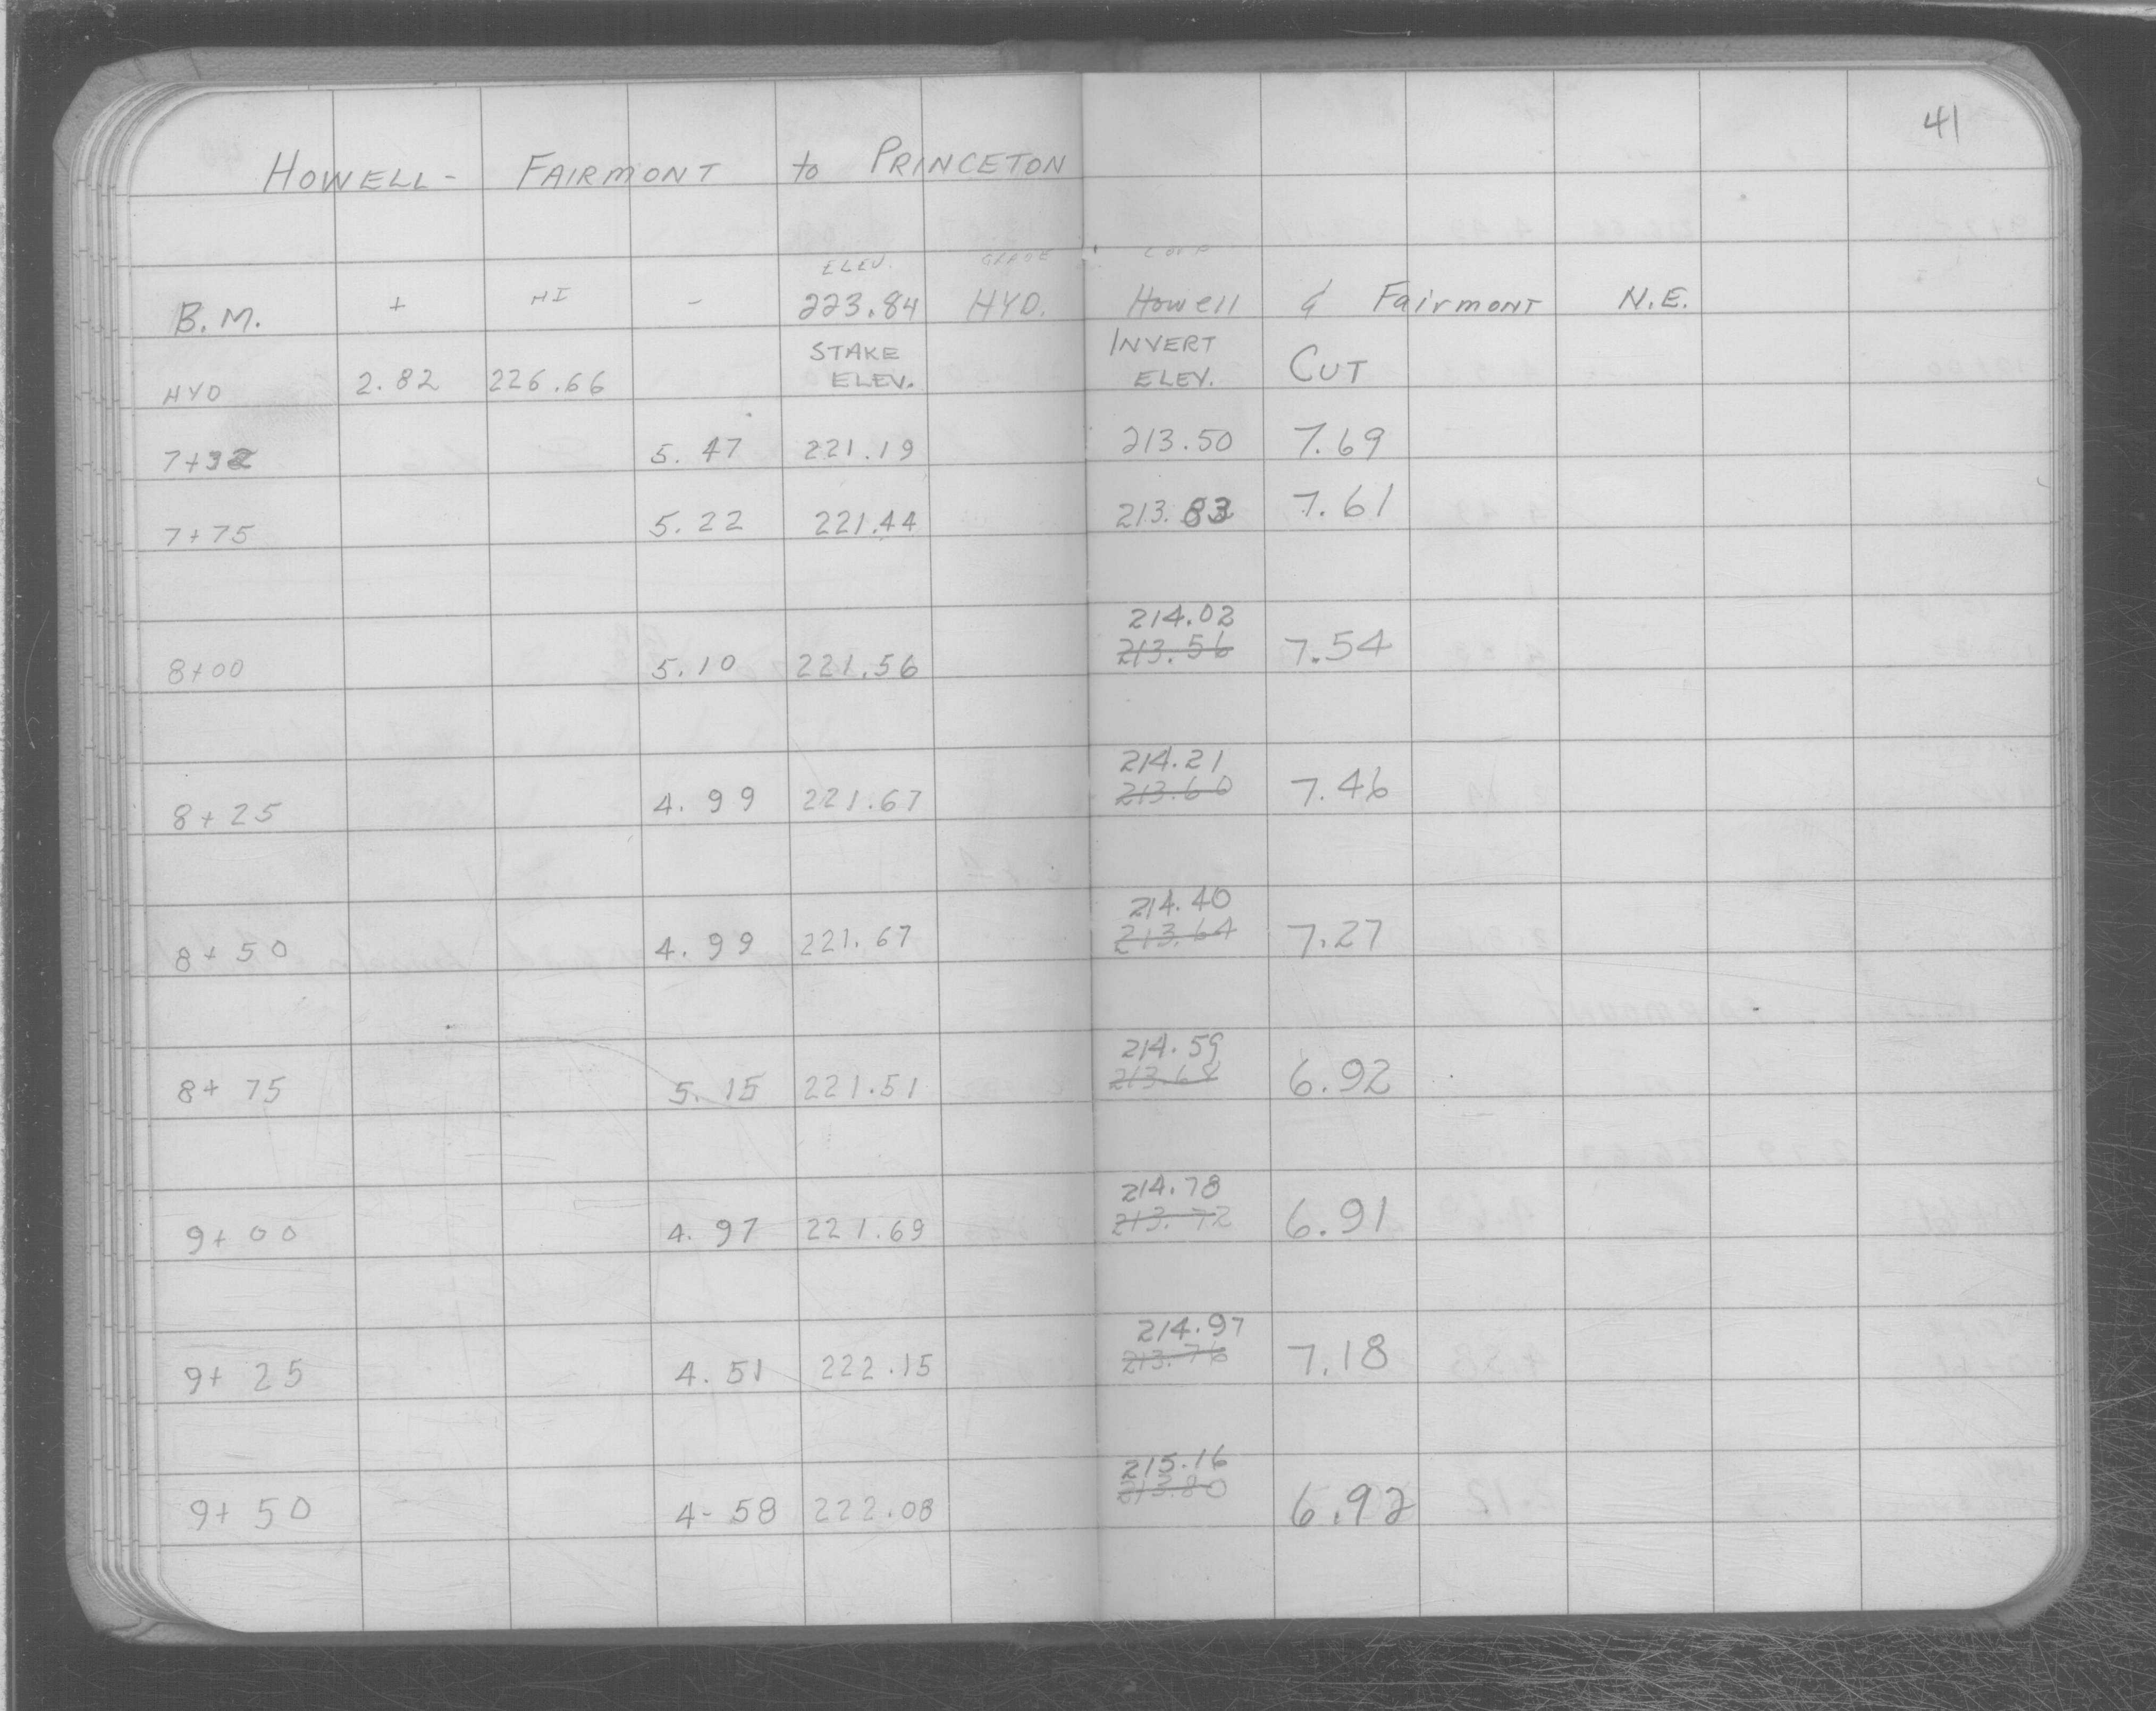 41
HOWELL - FAIRMONT to PRINCETON
ELEV. GRADE
B.M. + HI - 223.84 HYD. Howell & Fairmont N.E.
HYD 2.82 226.66 STAKE ELEV. INVERT ELEV. CUT
7+32 5.47 221.19 213.50 7.69
7+75 5.22 221.44 213.83 7.61
214.02
8+00 5.10 221.56 213.56 7.54
214.21
8+25 4.99 221.67 213.60 7.46
214.40
8+50 4.99 221.67 213.64 7.27
214.59
8+75 5.15 221.51 213.68 6.92
214.78
9+00 4.97 221.69 213.72 6.91
214.97
9+25 4.51 222.15 213.76 7.18
215.16
9+50 4-58 222.08 213.80 6.92